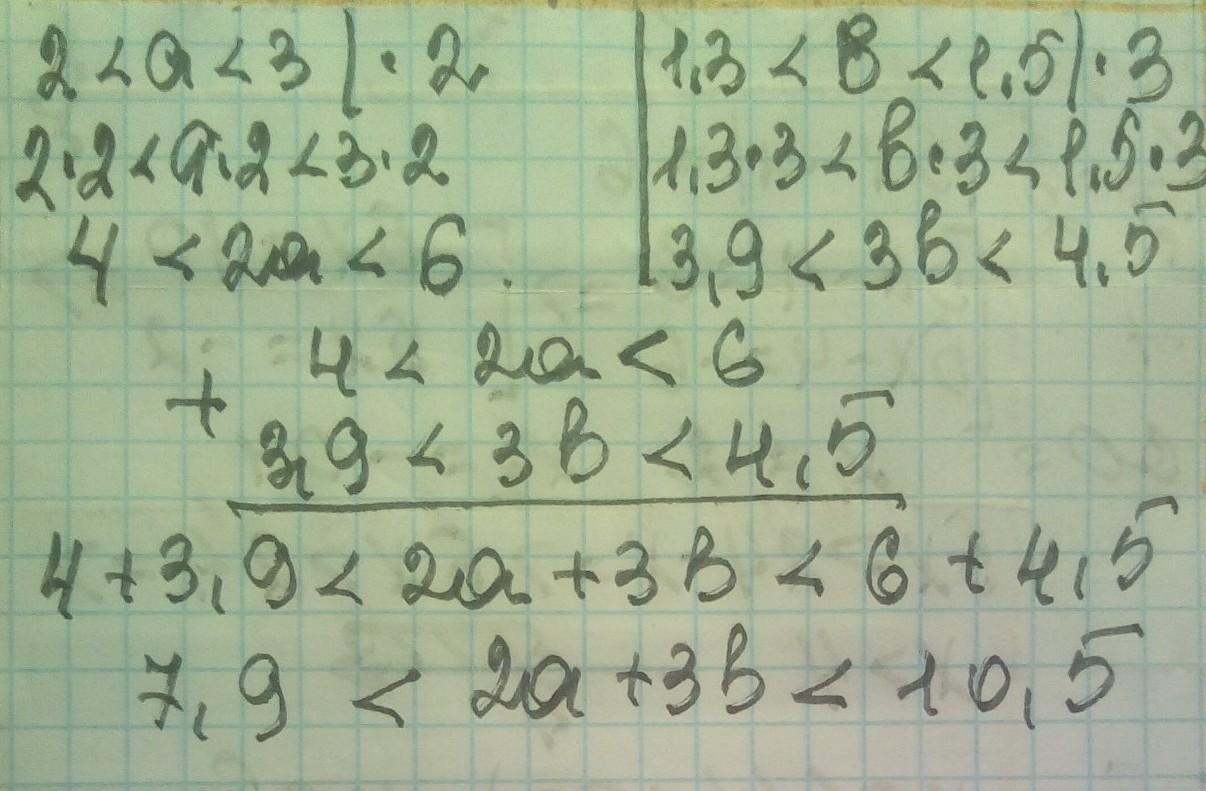 2 < a < 3 | · 2
2·2 < a·2 < 3·2
4 < 2a < 6
1,3 < b < 1,5 | · 3
1,3·3 < b·3 < 1,5·3
3,9 < 3b < 4,5
4 < 2a < 6
+
3,9 < 3b < 4,5
4 + 3,9 < 2a + 3b < 6 + 4,5
7,9 < 2a + 3b < 10,5